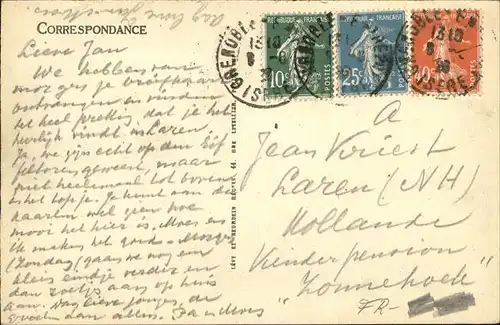 Dag lieve Jan
CORRESPONDANCE
Lieve Jan
We hebben van
morgen je briefkaart
ontvangen en vinden
het heel prettig, dat je het
heerlijk vindt in Laren
Ja, we zijn echt op den
geweest, maar
niet heelemaal tot boven
het topje. Je kunt aan de
kaarten wel zien hoe
mooi het hier is. Moes en
ik maken het goed. Morgen
(Zondag) gaan we nog een
klein eindje verder en
dan zoetjes aan op huis
aan. Dag lieve jongen, de
groeten aan allen. Paedevos
RÉPUBLIQUE FRANÇAISE
10c
POSTES
25c
POSTES
40c
POSTES
GRENOBLE
ISÈRE
LÉVY ET NEURDEIN RÉUNIS, 44, RUE LETELLIER
A
Jean Kriest
Laren (NH)
Hollande
Kinderpension
"Zonnehoek"
FR-